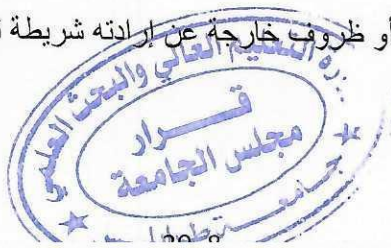 أو ظروف خارجة عن إرادته شريطة
وزارة التعليم العالي والبحث العلمي
قرار
مجلس الجامعة
جامعة